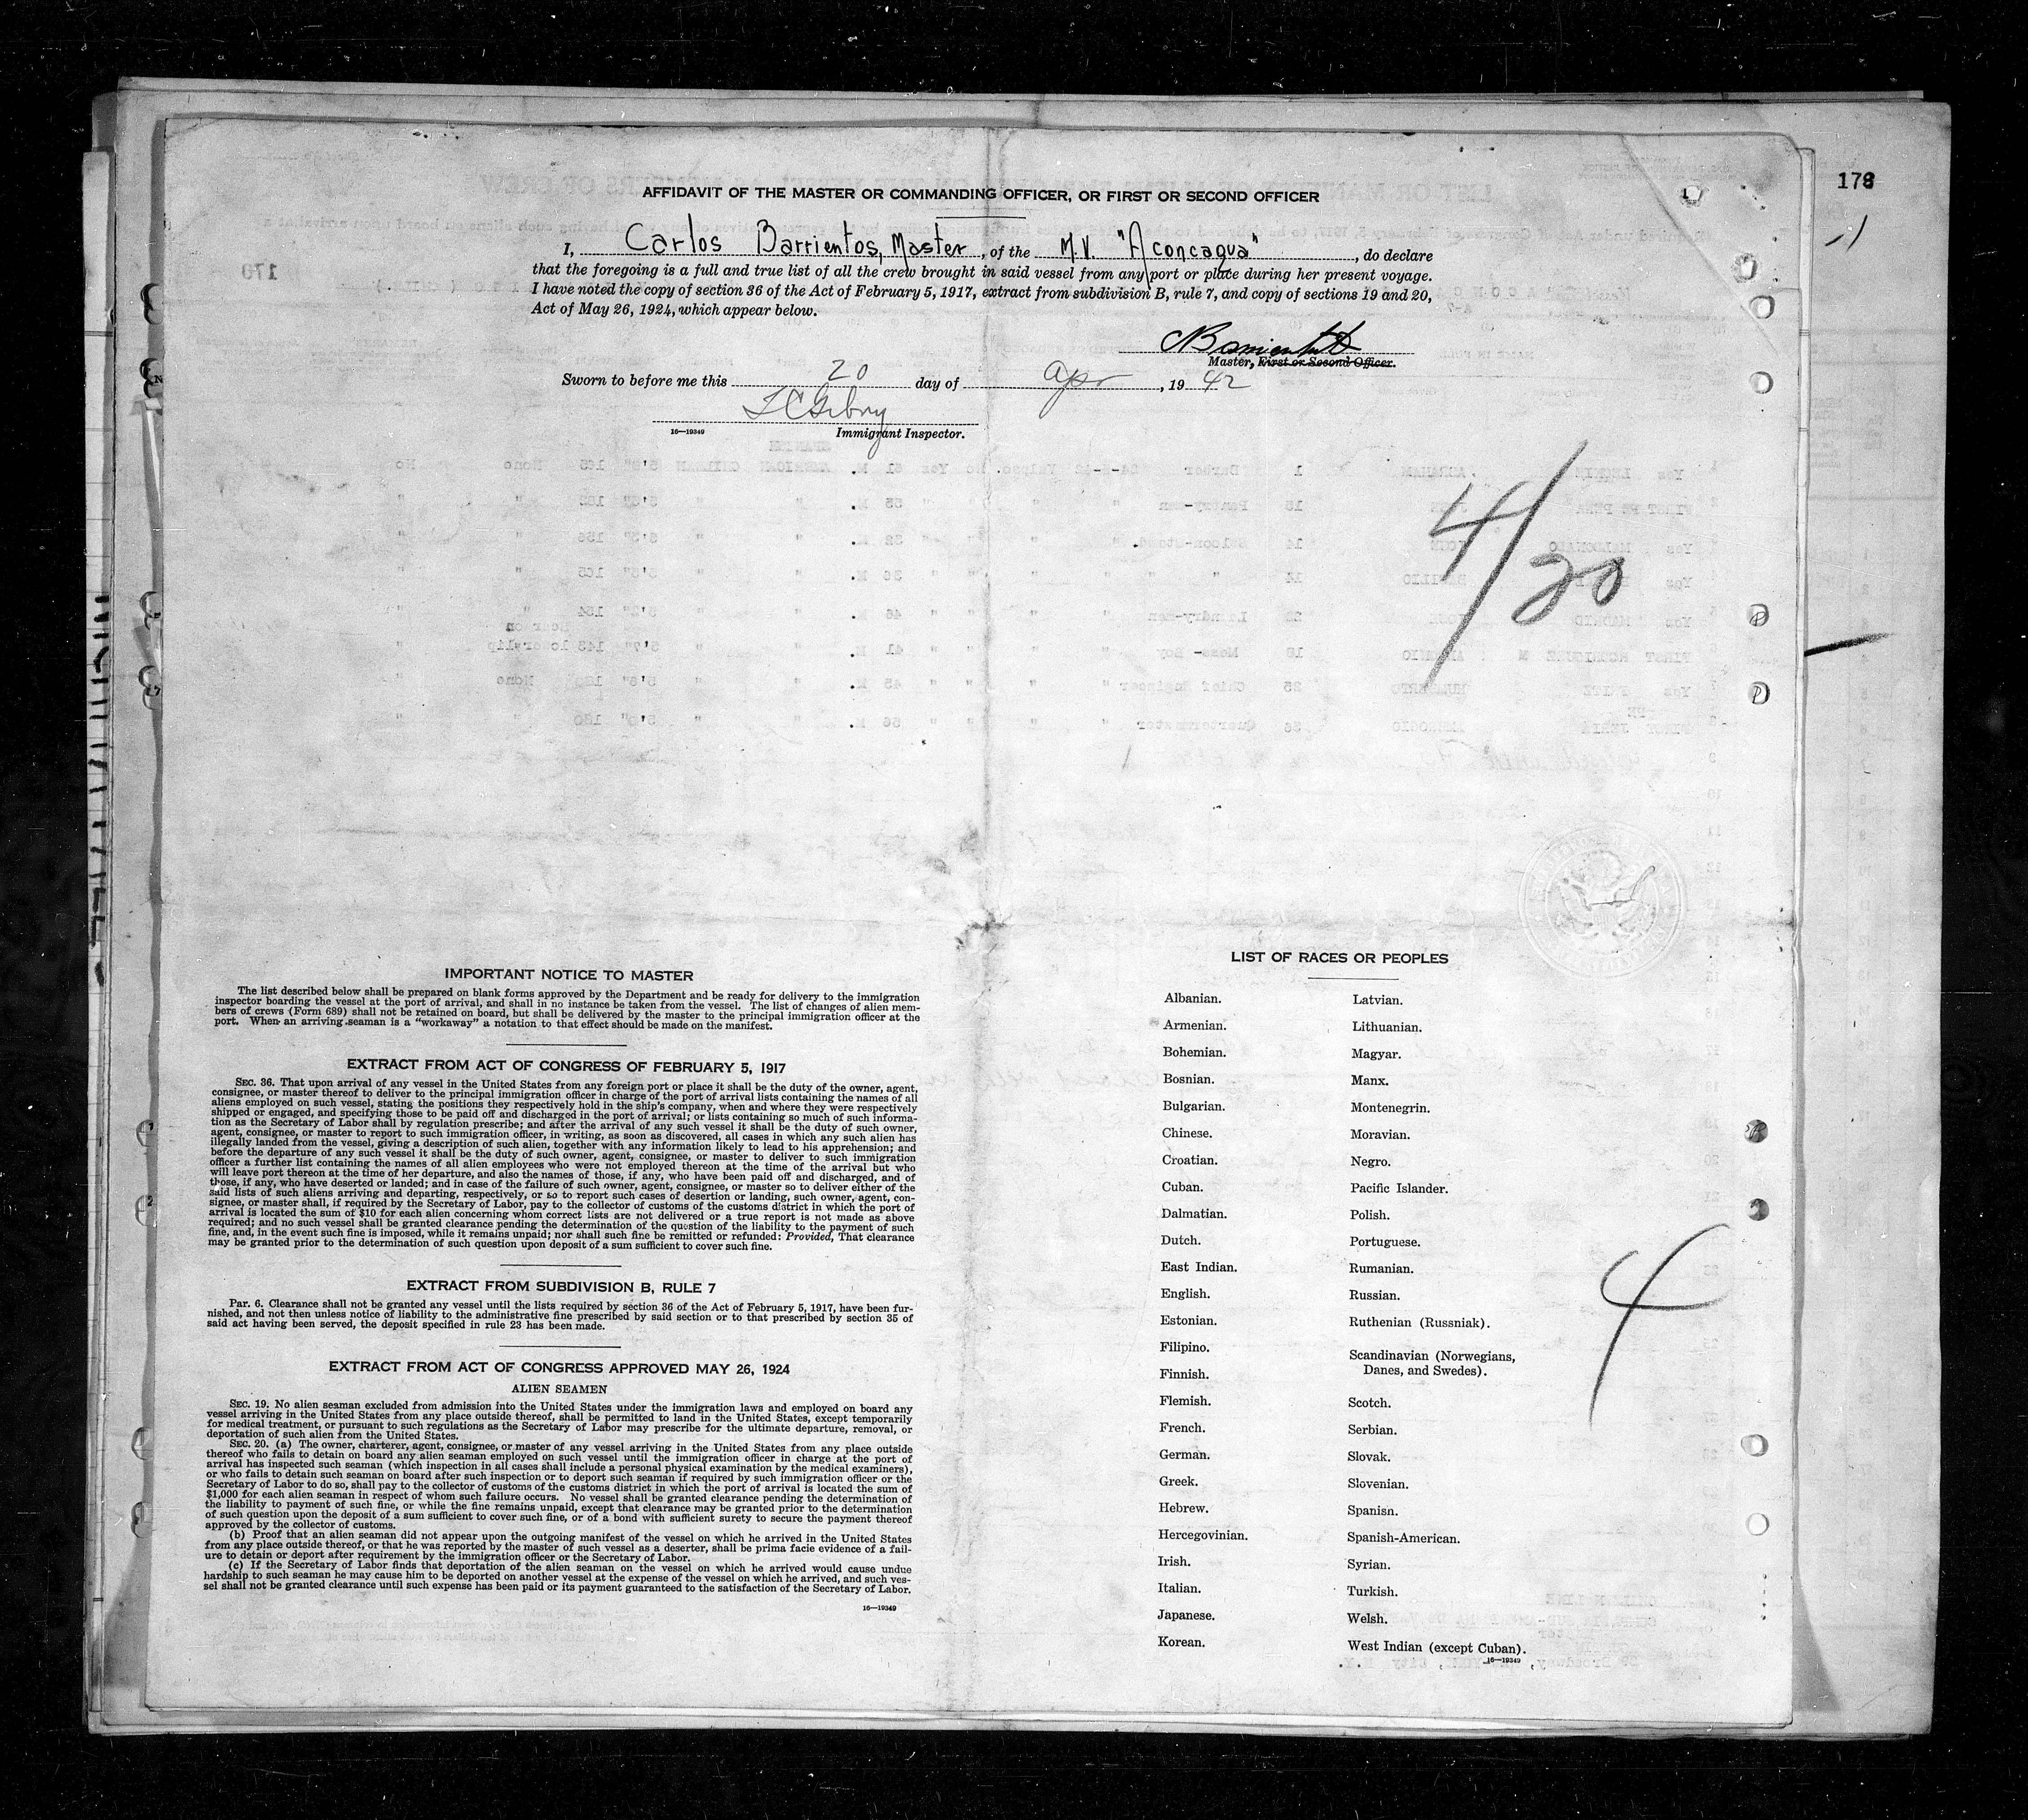 178
AFFIDAVIT OF THE MASTER OR COMMANDING OFFICER, OR FIRST OR SECOND OFFICER
I, Carlos Barrientos, Master, of the M.V. "Aconcagua", do declare
that the foregoing is a full and true list of all the crew brought in said vessel from any port or place during her present voyage.
I have noted the copy of section 36 of the Act of February 5, 1917, extract from subdivision B, rule 7, and copy of sections 19 and 20,
Act of May 26, 1924, which appear below.
Master, First or Second Officer.
Sworn to before me this 20 day of Apr, 1942
16—19349 Immigrant Inspector.
4/20
IMPORTANT NOTICE TO MASTER
The list described below shall be prepared on blank forms approved by the Department and be ready for delivery to the immigration
inspector boarding the vessel at the port of arrival, and shall in no instance be taken from the vessel. The list of changes of alien mem-
bers of crews (Form 689) shall not be retained on board, but shall be delivered by the master to the principal immigration officer at the
port. When an arriving seaman is a "workaway" a notation to that effect should be made on the manifest.
EXTRACT FROM ACT OF CONGRESS OF FEBRUARY 5, 1917
SEC. 36. That upon arrival of any vessel in the United States from any foreign port or place it shall be the duty of the owner, agent,
consignee, or master thereof to deliver to the principal immigration officer in charge of the port of arrival lists containing the names of all
aliens employed on such vessel, stating the positions they respectively hold in the ship's company, when and where they were respectively
shipped or engaged, and specifying those to be paid off and discharged in the port of arrival; or lists containing so much of such informa-
tion as the Secretary of Labor shall by regulation prescribe; and after the arrival of any such vessel it shall be the duty of such owner,
agent, consignee, or master to report to such immigration officer, in writing, as soon as discovered, all cases in which any such alien has
illegally landed from the vessel, giving a description of such alien, together with any information likely to lead to his apprehension; and
before the departure of any such vessel it shall be the duty of such owner, agent, consignee, or master to deliver to such immigration
officer a further list containing the names of all alien employees who were not employed thereon at the time of the arrival but who
will leave port thereon at the time of her departure, and also the names of those, if any, who have been paid off and discharged, and of
those, if any, who have deserted or landed; and in case of the failure of such owner, agent, consignee, or master so to deliver either of the
said lists of such aliens arriving and departing, respectively, or so to report such cases of desertion or landing, such owner, agent, con-
signee, or master shall, if required by the Secretary of Labor, pay to the collector of customs of the customs district in which the port of
arrival is located the sum of $10 for each alien concerning whom correct lists are not delivered or a true report is not made as above
required; and no such vessel shall be granted clearance pending the determination of the question of the liability to the payment of such
fine, and, in the event such fine is imposed, while it remains unpaid; nor shall such fine be remitted or refunded: Provided, That clearance
may be granted prior to the determination of such question upon deposit of a sum sufficient to cover such fine.
EXTRACT FROM SUBDIVISION B, RULE 7
PAR. 6. Clearance shall not be granted any vessel until the lists required by section 36 of the Act of February 5, 1917, have been fur-
nished, and not then unless notice of liability to the administrative fine prescribed by said section or to that prescribed by section 35 of
said act having been served, the deposit specified in rule 23 has been made.
EXTRACT FROM ACT OF CONGRESS APPROVED MAY 26, 1924
ALIEN SEAMEN
SEC. 19. No alien seaman excluded from admission into the United States under the immigration laws and employed on board any
vessel arriving in the United States from any place outside thereof, shall be permitted to land in the United States, except temporarily
for medical treatment, or pursuant to such regulations as the Secretary of Labor may prescribe for the ultimate departure, removal, or
deportation of such alien from the United States.
SEC. 20. (a) The owner, charterer, agent, consignee, or master of any vessel arriving in the United States from any place outside
thereof who fails to detain on board any alien seaman employed on such vessel until the immigration officer in charge at the port of
arrival has inspected such seaman (which inspection in all cases shall include a personal physical examination by the medical examiners),
or who fails to detain such seaman on board after such inspection or to deport such seaman if required by such immigration officer or the
Secretary of Labor to do so, shall pay to the collector of customs of the customs district in which the port of arrival is located the sum of
$1,000 for each alien seaman in respect of whom such failure occurs. No vessel shall be granted clearance pending the determination of
the liability to payment of such fine, or while the fine remains unpaid, except that clearance may be granted prior to the determination
of such question upon the deposit of a sum sufficient to cover such fine, or of a bond with sufficient surety to secure the payment thereof
approved by the collector of customs.
(b) Proof that an alien seaman did not appear upon the outgoing manifest of the vessel on which he arrived in the United States
from any place outside thereof, or that he was reported by the master of such vessel as a deserter, shall be prima facie evidence of a fail-
ure to detain or deport after requirement by the immigration officer or the Secretary of Labor.
(c) If the Secretary of Labor finds that deportation of the alien seaman on the vessel on which he arrived would cause undue
hardship to such seaman he may cause him to be deported on another vessel at the expense of the vessel on which he arrived, and such ves-
sel shall not be granted clearance until such expense has been paid or its payment guaranteed to the satisfaction of the Secretary of Labor.
16—19349
LIST OF RACES OR PEOPLES
Albanian.
Armenian.
Bohemian.
Bosnian.
Bulgarian.
Chinese.
Croatian.
Cuban.
Dalmatian.
Dutch.
East Indian.
English.
Estonian.
Filipino.
Finnish.
Flemish.
French.
German.
Greek.
Hebrew.
Hercegovinian.
Irish.
Italian.
Japanese.
Korean.
Latvian.
Lithuanian.
Magyar.
Manx.
Montenegrin.
Moravian.
Negro.
Pacific Islander.
Polish.
Portuguese.
Rumanian.
Russian.
Ruthenian (Russniak).
Scandinavian (Norwegians,
Danes, and Swedes).
Scotch.
Serbian.
Slovak.
Slovenian.
Spanish.
Spanish-American.
Syrian.
Turkish.
Welsh.
West Indian (except Cuban).
16—19349
4